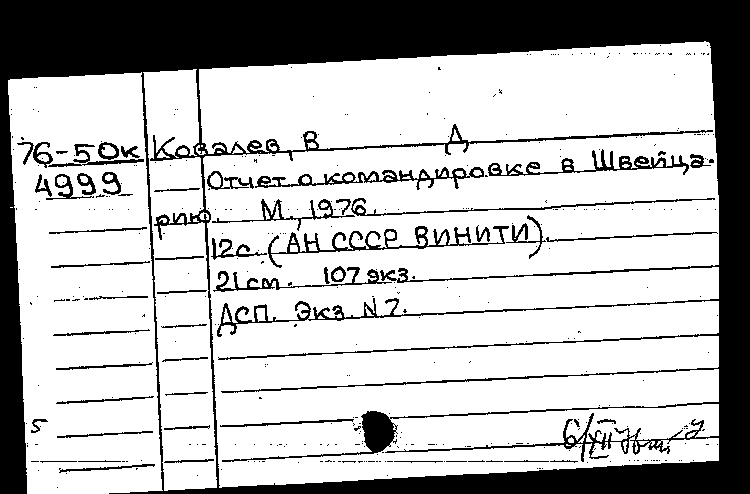 76-50к Ковалев, В Д
4999 Отчет о командировке в Швейца-
рию. М., 1976.
12с. (АН СССР ВИНИТИ).
21см. 107экз.
ДСП. Экз. N7.
5
6/XII